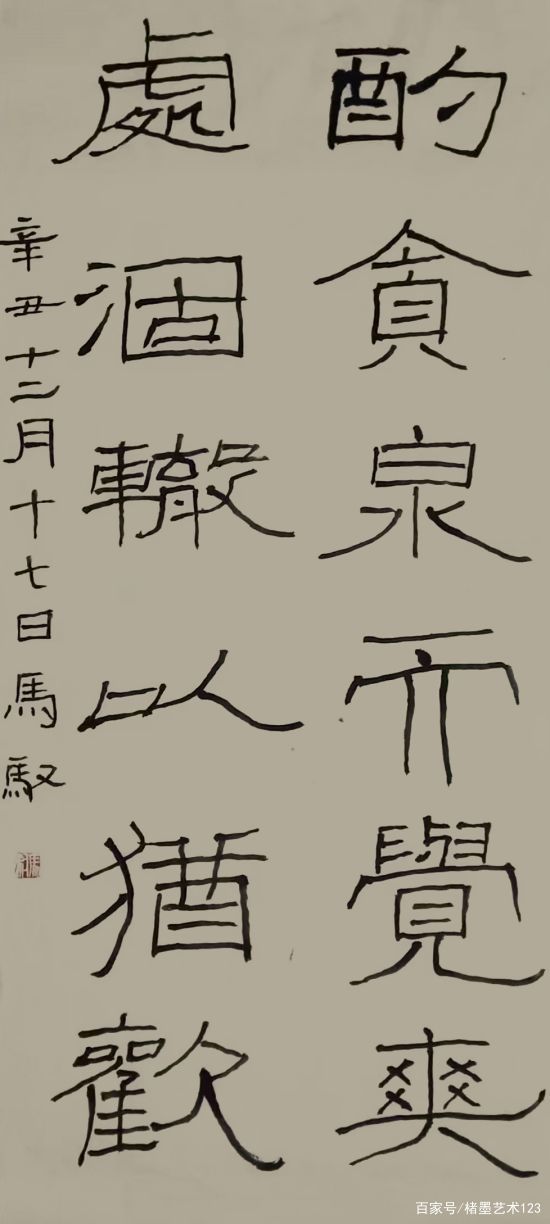 酌貪泉而覺爽
處涸轍以猶歡
辛丑十二月十七日馬馭
百家号/楮墨艺术123